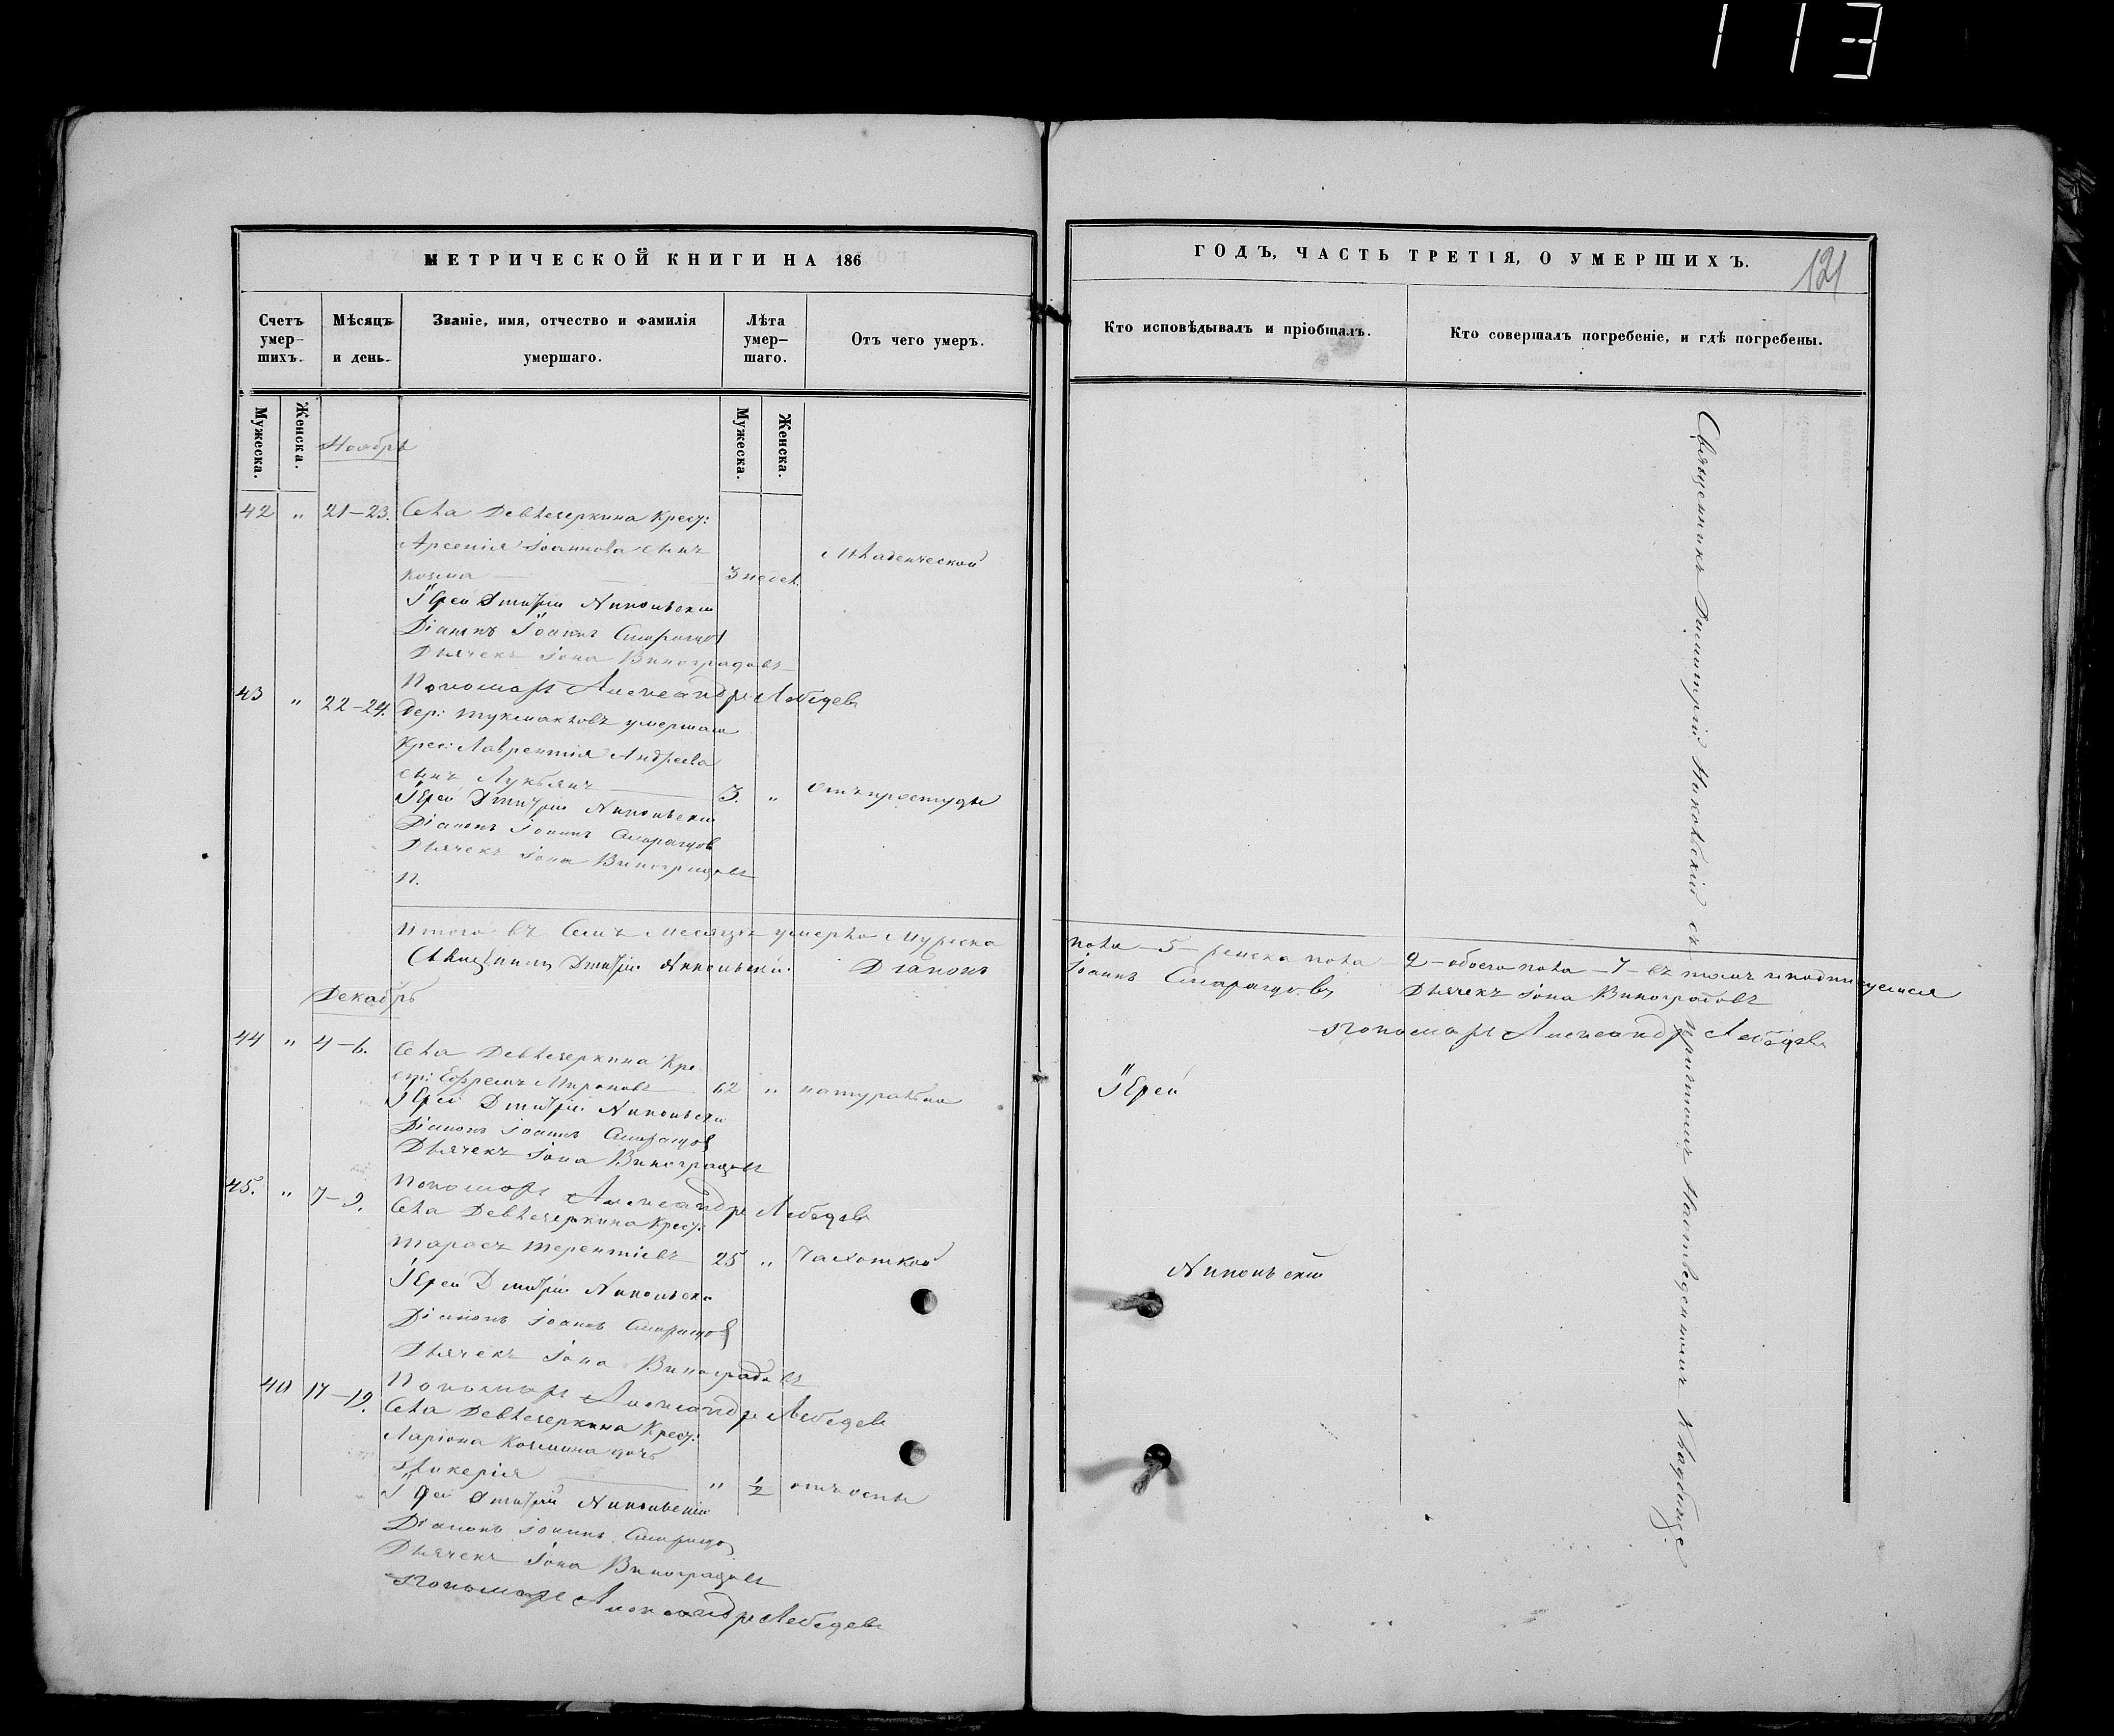 113
МЕТРИЧЕСКОЙ КНИГИ НА 186
Счетъ умер-шихъ.
Мѣсяцъ и день.
Званіе, имя, отчество и фамилія умершаго.
Лѣта умер-шаго.
Отъ чего умеръ.
Мужеска.
Женска.
Мужеска.
Женска.
Ноябрь
42 " 21-23. Села Девлезеркина Крест:
Арсенія Іоаннова сынъ
Козма 3 недел. Младенческой
Іерей Дмитрій Никольскій
Діаконъ Іоаннъ Смарагдов
Дьячекъ Іона Виноградовъ
Пономарь Александръ Лебедев
43 " 22-24. Дер: умершаго
Крес: Лаврентія Андреева
сынъ Лукьянъ 3. " отъ простуды
Іерей Дмитрій Никольскій
Діаконъ Іоаннъ Смарагдов
Дьячекъ Іона Виноградовъ
П.
Итого въ Семъ Месяцѣ умерло Мужска
пола - 5 - женска пола - 2 - обоего пола - 7 - въ томъ и подписуемся
Священникъ Дмитрій Никольскій. Діаконъ
Іоаннъ Смарагдовъ Дьячекъ Іона Виноградовъ
Пономарь Александръ Лебедевъ
Декабрь
44 " 4-6. Села Девлезеркина Кре
ст: Ефремъ Мироновъ 62 " натурально
Іерей Дмитрій Никольскій
Діаконъ Іоаннъ Смарагдов
Дьячекъ Іона Виноградовъ
Пономарь Александръ Лебедев
45. " 7-9. Села Девлезеркина Крест:
Тарасъ Терентіевъ 25 " Чахоткой
Іерей Дмитрій Никольскій
Діаконъ Іоаннъ Смарагдов
Дьячекъ Іона Виноградовъ
Пономарь Александръ Лебедев
40 17-19. Села Девлезеркина Крест:
Ларіона Козмина дочь
Гликерія " 1/2 отъ оспы
Іерей Дмитрій Никольскій
Діаконъ Іоаннъ Смарагдо
Дьячекъ Іона Виноградовъ
Пономарь Александръ Лебедев
ГОДЪ, ЧАСТЬ ТРЕТІЯ, О УМЕРШИХЪ.
121
Кто исповѣдывалъ и пріобщалъ.
Кто совершалъ погребеніе, и гдѣ погребены.
Іерей
Никольскій
Священникъ Димитрій Никольскій съ причтомъ на отведенномъ кладбище